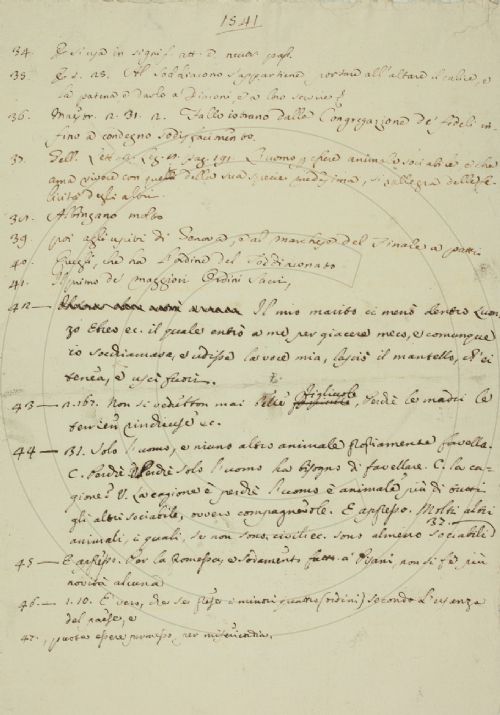 1541
34. E si usa in signif. att. e neutr. pass.
35. Al Soddiacono s'appartiene portare all'altare il calice, e
la patena e darlo a' Diaconi, e a loro servire
36. Maestr. 2. 31. 2. Fallo iscrano dalla Congregazione de' fedeli in-
fino a condegno sodisfacimento.
37. Gell. Lett. Lez. pag. 191. L'uomo essere animale sociabile e che
ama vivere con quelli della sua spezie medesima, si rallegra della fe-
licità degli altri.
38. Abbingano molto
39. poi agli usciti di Genova, e al marchese del Finale a patti
40. Quegli, che ha l'ordine del Soddiaconato
41. Il primo de' maggiori Ordini Sacri,
42 — Il mio marito ci menò dentro Luon-
zo Eteo ec. il quale entrò a me per giacere meco, e comunque
io sociamasse, e udisse la voce mia, lasciò il mantello, ch'ei
tenea, e uscì fuori.
43 — 2. 167. Non si vedittono mai figliuole, perchè le madri le
terrien rinchiuse ec.
44 — 31. Solo l'uomo, e niuno altro animale propiamente favella.
C. Perchè V. Perchè solo l'uomo ha bisogno di favellare. C. La ca-
gione? V. La cagione è perchè l'uomo è animale più di tutti
gli altri sociabile, ovvero compagnevole. E appresso. Molti altri
37.
animali, i quali, se non sono civili ec. sono almeno sociabili
45 — E appresso. Per la Romesca, e sodamento fatto a' Pisani, non si fè più
novità alcuna
46 — 1. 10. È vero, che sei (ridini) secondo l'usanza
del paese, e
47. , puote essere permesso per misericordia.